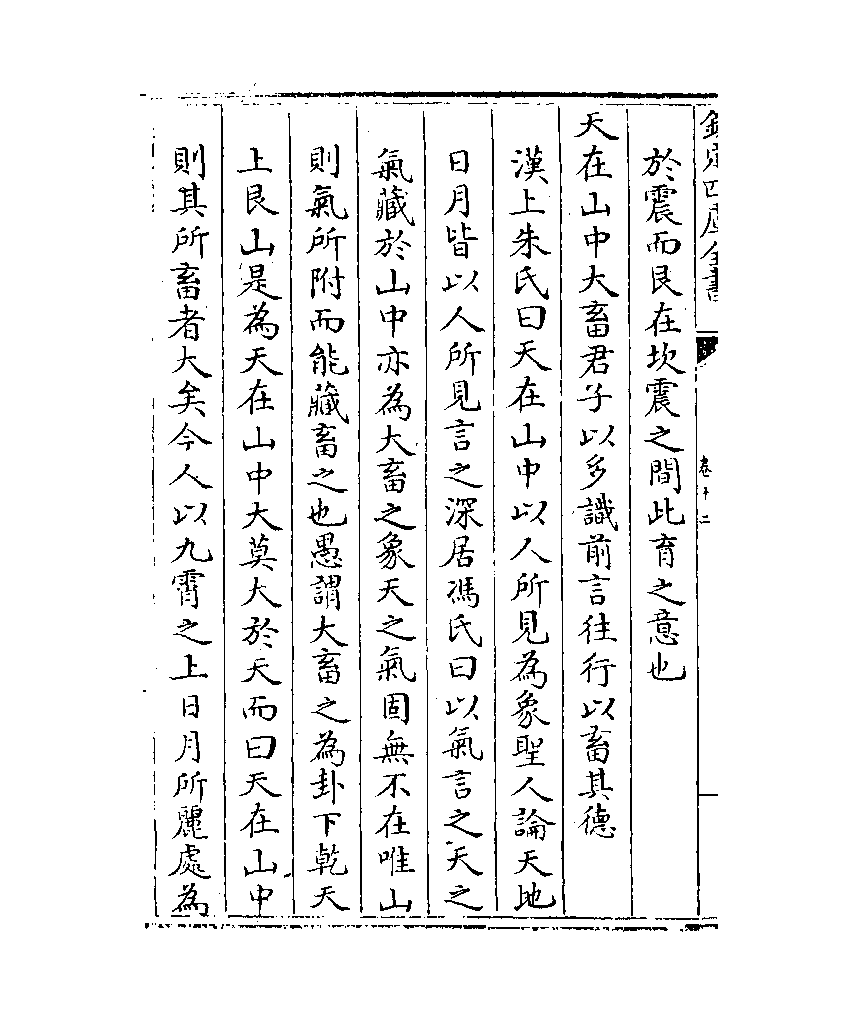 欽定四庫全書
卷十二
於震而艮在坎震之間此育之意也
天在山中大畜君子以多識前言往行以畜其德
漢上朱氏曰天在山中以人所見為象聖人論天地
日月皆以人所見言之深居馮氏曰以氣言之天之
氣藏於山中亦為大畜之象天之氣固無不在唯山
則氣所附而能藏畜之也愚謂大畜之為卦下乾天
上艮山是為天在山中大莫大於天而曰天在山中
則其所畜者大矣今人以九霄之上日月所麗處為